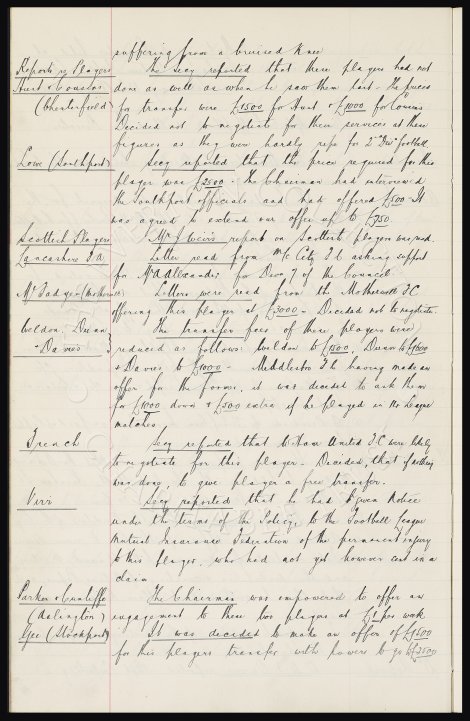 suffering from a bruised knee.
Reports of Players The Secy reported that these players had not
Hurst & Cousins done as well as when he saw them last. The prices
(Chesterfield) for transfer were £1500 for Hurst & £1000 for Cousins
Decided not to negotiate for their services at these
figures as they were hardly ripe for 2nd Div football.
Lowe (Southport) Secy reported that the price required for this
player was £2500 - The Chairman had interviewed
the Southport officials and had offered £500. It
was agreed to extend our offer up to £750
Scottish Players Mr J Weir's report on Scottish players was read.
Lancashire F.A. Letter read from M/c City F.C asking support
for Mr A Alexander for Divn 7 of the Council
Mr Fadyen (Motherwell) Letters were read from the Motherwell F.C
offering this player at £3000 - Decided not to negotiate.
Weldon, Dunn The transfer fees of these players were
& Davies reduced as follows: Weldon to £1500, Dunn to
& Davies to £1000 - Middlesbro F.C. having made an
offer for the former, it was decided to ask them
for £1000 down & £500 extra if he played in League
matches.
French Secy reported that W Ham United F.C were likely
to negotiate for this player - Decided, that if nothing
was done, to give player a free transfer.
Virr Secy reported that he had given Notice
under the terms of the Policy to the Football League
Mutual Insurance Federation of the permanent injury
to this player, who had not yet however sent in a
claim
Parker & Cunliffe The Chairman was empowered to offer an
(Adlington) engagement to these two players at per week
Gee (Stockport) It was decided to make an offer of £1500
for this players transfer with powers to go to £2500